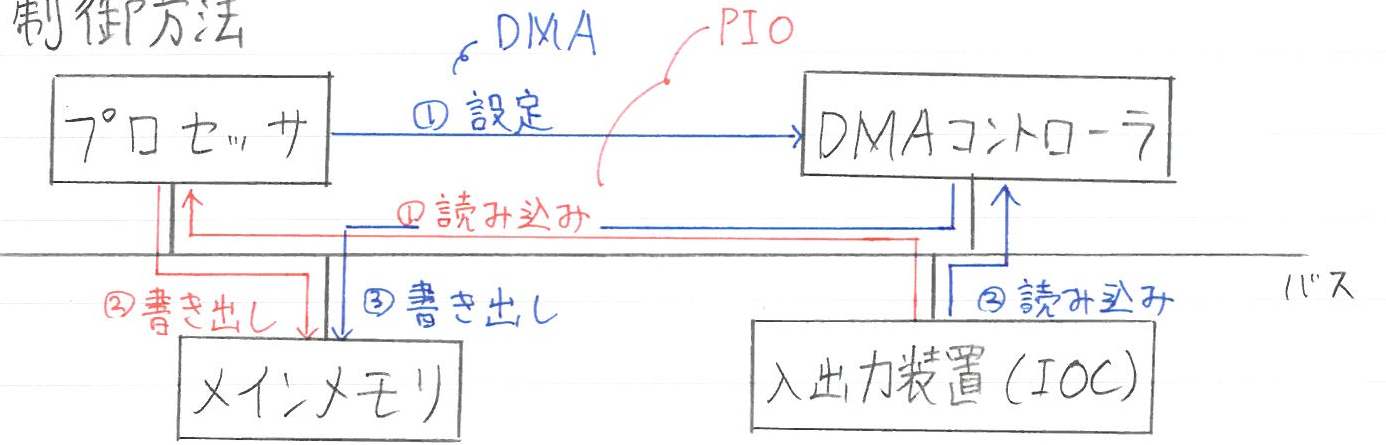 制御方法
DMA
PIO
プロセッサ
① 設定
DMAコントローラ
① 読み込み
バス
② 書き出し
③ 書き出し
② 読み込み
メインメモリ
入出力装置(IOC)